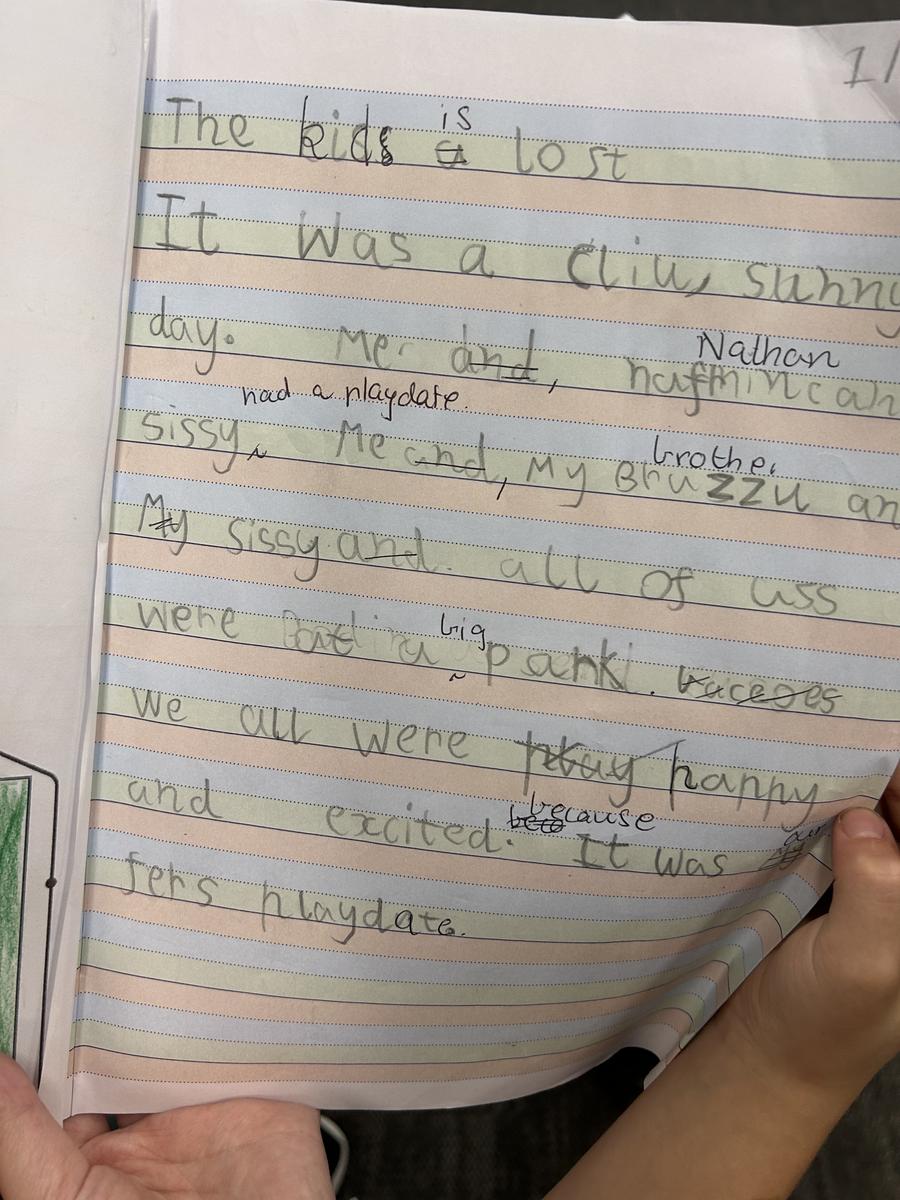 1/
is
The kids a lost
It was a cliu, sunny
day. Me and, nafthin can
Nathan
had a playdate.
sissy, Me and, My Bruzzu an
brother
My sissy and all of uss
were a park.
big
we all were play happy
and excited. It was
because
fers playdate.